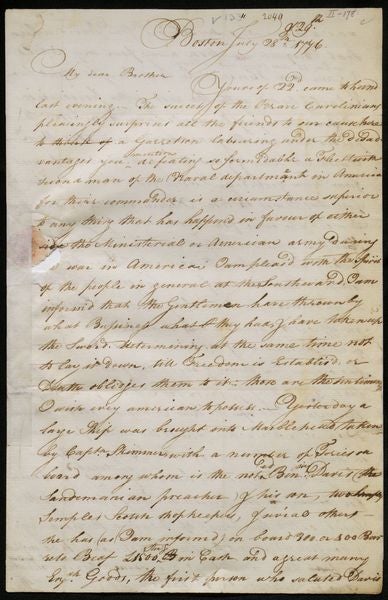 Boston July 28th & 29th 1776
My dear Brother
Yours of 22d. came to hand
last evening. The success of the Carolinians
pleasingly surprises all the friends to our cause here
to think of a Garrison labouring under the disad
vantages you mention defeating so formidable a Fleet with
such a man of the Naval department in America
for their commander, is a circumstance superior
to any thing that has happend in favour of either
side the Ministerial or American army during
war in America. I am pleasd with the Spirit
of the people in general at the Southward, I am
informed that the Gentlemen have thrown by
what Business what they had, & have taken up
the Sword determining at the same time not
to lay it down, till Freedom is Establisd. or
Death obledges them to it - those are the sentiments
I wish every american to possess. Yesterday a
large Ship was brought into Marblehead taken
by Captn. Skimmer with a number of Tories on
board among whom is the noted Benja. Davis (the
Sandemanian preacher) & his son, two
Semples Scotch shopkeepers, & several others
she has (as I am informed) on board 300 or 400 Bar
rels Beef £1500 Sterg. in Cash and a great many
Engh. Goods, the first person who saluted Davis